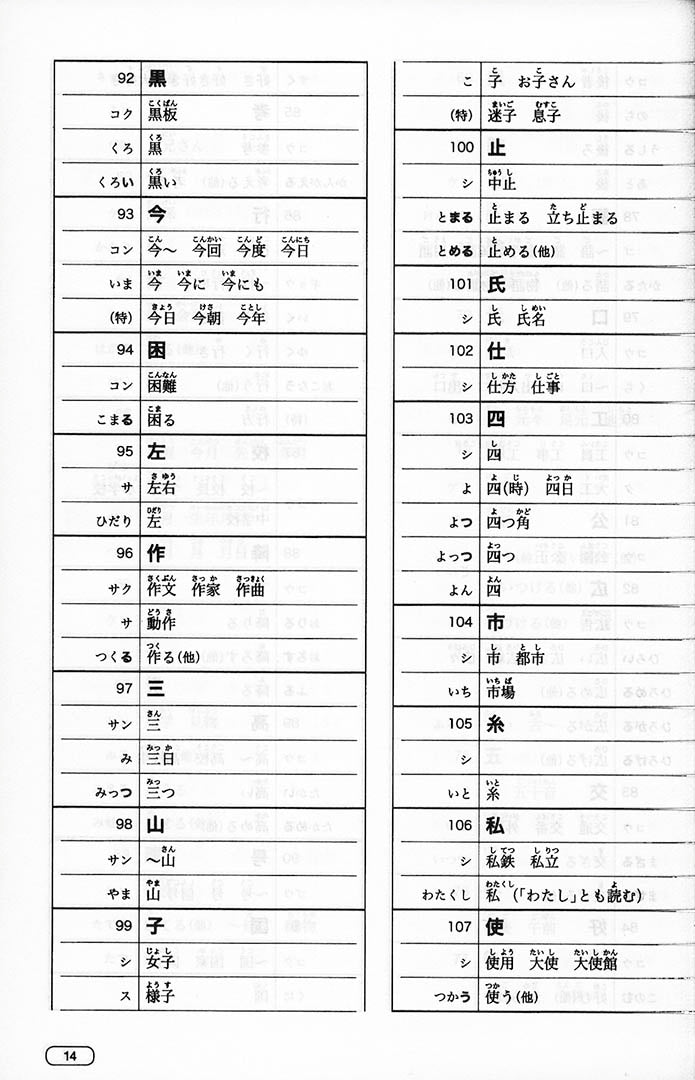 92 黒
コク 黒板
くろ 黒
くろい 黒い
93 今
コン 今〜 今回 今度 今日
いま 今 今に 今にも
(特) 今日 今朝 今年
94 困
コン 困難
こまる 困る
95 左
サ 左右
ひだり 左
96 作
サク 作文 作家 作曲
サ 動作
つくる 作る(他)
97 三
サン 三
み 三日
みっつ 三つ
98 山
サン 〜山
やま 山
99 子
シ 女子
ス 様子
こ 子 お子さん
(特) 迷子 息子
100 止
シ 中止
とまる 止まる 立ち止まる
とめる 止める(他)
101 氏
シ 氏 氏名
102 仕
シ 仕方 仕事
103 四
シ 四
よ 四(時) 四日
よつ 四つ角
よっつ 四つ
よん 四
104 市
シ 市 都市
いち 市場
105 糸
シ
いと 糸
106 私
シ 私鉄 私立
わたくし 私 (「わたし」とも読む)
107 使
シ 使用 大使 大使館
つかう 使う(他)
14